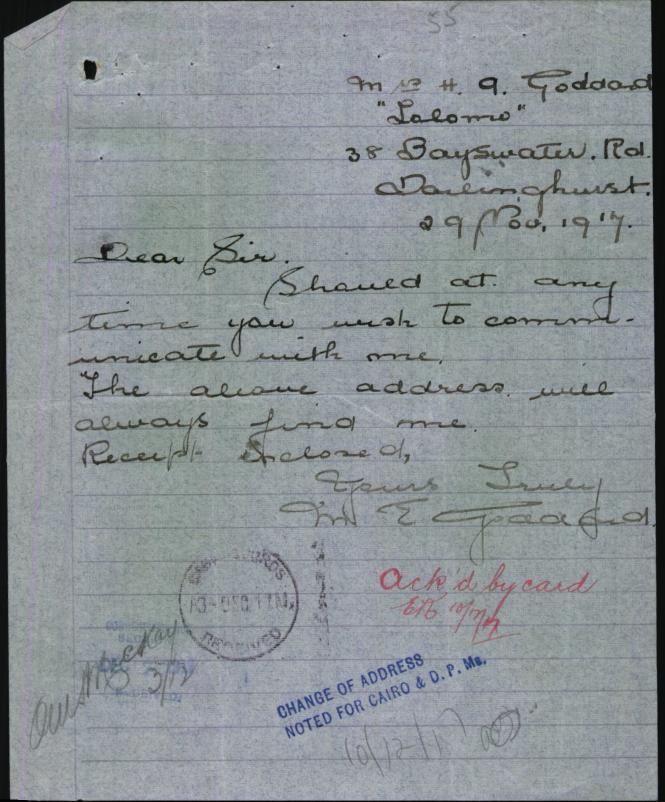 55
Mrs H. A. Goddard
38 Bayswater. Rd.
Darlinghurst.
29 Nov, 1917.
Dear Sir.
Should at any
time you wish to comm-
unicate with me.
The above address will
always find me.
Receipt Enclosed,
Yours Truly
M E Goddard.
RECEIVED
Ack'd by card
CHANGE OF ADDRESS
NOTED FOR CAIRO & D. P. Ms.
3/12
10/12/17